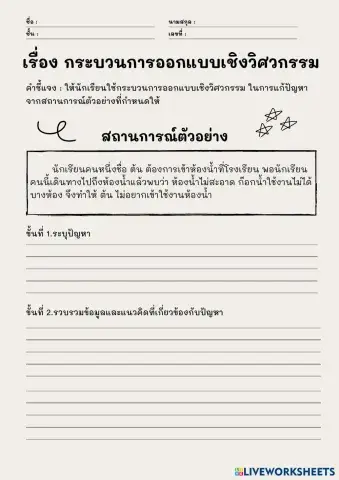 ชื่อ : นามสกุล :
ชั้น : เลขที่ :
เรื่อง กระบวนการออกแบบเชิงวิศวกรรม
คำชี้แจง : ให้นักเรียนใช้กระบวนการออกแบบเชิงวิศวกรรม ในการแก้ปัญหา
จากสถานการณ์ตัวอย่างที่กำหนดให้
สถานการณ์ตัวอย่าง
นักเรียนคนหนึ่งชื่อ ต้น ต้องการเข้าห้องน้ำที่โรงเรียน พอนักเรียน
คนนี้เดินทางไปถึงห้องน้ำแล้วพบว่า ห้องน้ำไม่สะอาด ก๊อกน้ำใช้งานไม่ได้
บางห้อง จึงทำให้ ต้น ไม่อยากเข้าใช้งานห้องน้ำ
ขั้นที่ 1.ระบุปัญหา
ขั้นที่ 2.รวบรวมข้อมูลและแนวคิดที่เกี่ยวข้องกับปัญหา
LIVEWORKSHEETS